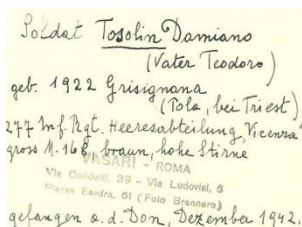 Soldat Tosolin Damiano
(Vater Teodoro)
geb. 1922 Grisignana
(Pola, bei Triest)
277 Inf. Rgt. Heeresabteilung "Vicenza"
gross M. 168, braun, hohe Stirne
VASARI - ROMA
Via Condotti, 39 - Via Ludovisi, 6
Piazza Esedra, 61 (Foto Brennero)
gefangen a. d. Don, Dezember 1942.